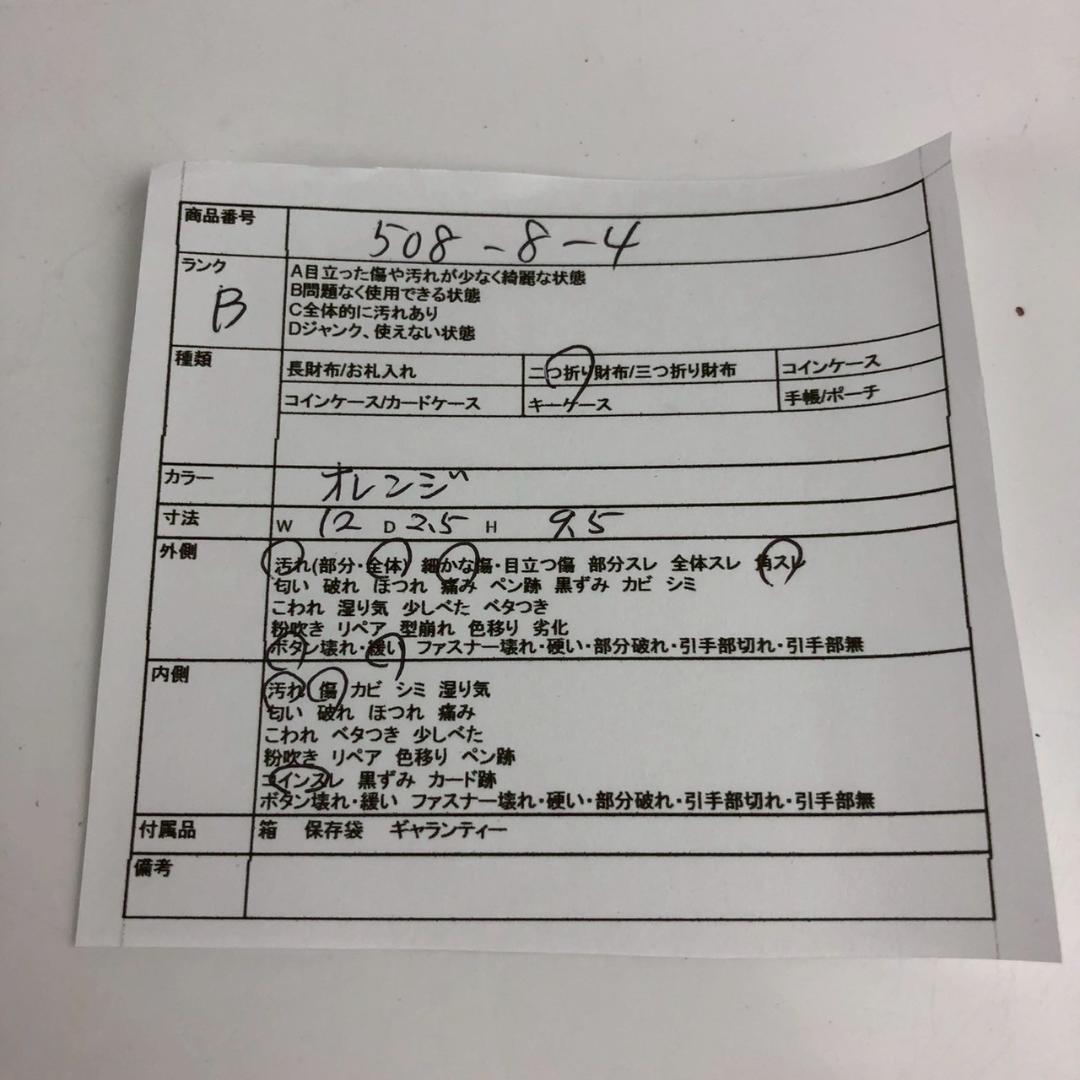 商品番号 508-8-4
ランク B
A目立った傷や汚れが少なく綺麗な状態
B問題なく使用できる状態
C全体的に汚れあり
Dジャンク、使えない状態
種類
長財布/お札入れ 二つ折り財布/三つ折り財布 コインケース
コインケース/カードケース キーケース 手帳/ポーチ
カラー オレンジ
寸法 W 12 D 2.5 H 9.5
外側
汚れ(部分・全体) 細かな傷・目立つ傷 部分スレ 全体スレ 角スレ
匂い 破れ ほつれ 痛み ペン跡 黒ずみ カビ シミ
こわれ 湿り気 少しべた ベタつき
粉吹き リペア 型崩れ 色移り 劣化
ボタン壊れ・緩い ファスナー壊れ・硬い・部分破れ・引手部切れ・引手部無
内側
汚れ 傷 カビ シミ 湿り気
匂い 破れ ほつれ 痛み
こわれ ベタつき 少しべた
粉吹き リペア 色移り ペン跡
コインスレ 黒ずみ カード跡
ボタン壊れ・緩い ファスナー壊れ・硬い・部分破れ・引手部切れ・引手部無
付属品 箱 保存袋 ギャランティー
備考